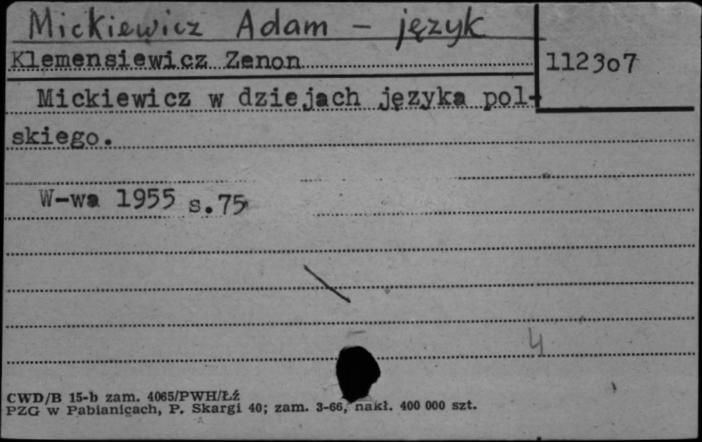 Mickiewicz Adam - język
Klemensiewicz Zenon
112307
Mickiewicz w dziejach języka pol-
skiego.
W-wa 1955 s.75
4
CWD/B 15-b zam. 4065/PWH/Łź
PZG w Pabianicach, P. Skargi 40; zam. 3-66, nakł. 400 000 szt.